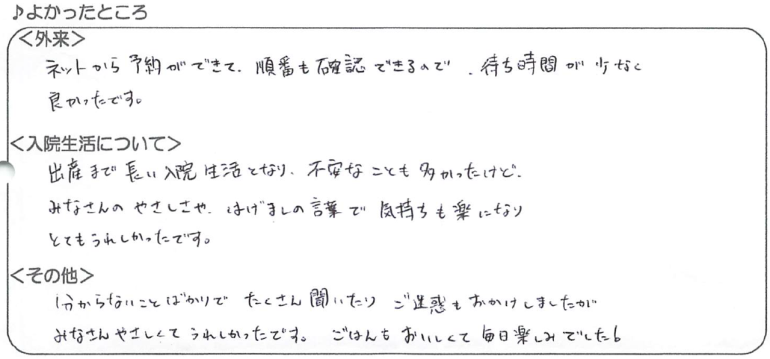 ♪よかったところ
＜外来＞
ネットから予約ができて、順番も確認できるので、待ち時間が少なく
良かったです。
＜入院生活について＞
出産まで長い入院生活となり、不安なことも多かったけど、
みなさんのやさしさや、はげましの言葉で気持ちも楽になり
とてもうれしかったです。
＜その他＞
分からないことばかりでたくさん聞いたりご迷惑もおかけしましたが
みなさんやさしくてうれしかったです。ごはんもおいしくて毎日楽しみでした!